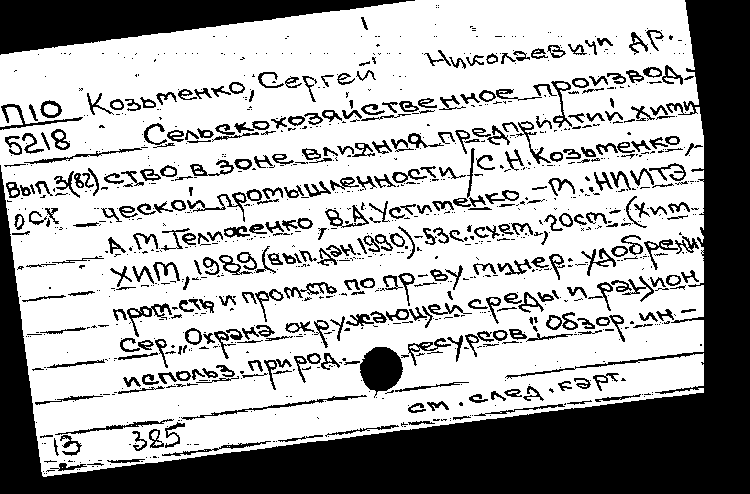 Козьменко, Сергей Николаевич и др.
П10
5218
Вып.3(82)
ОСХ
Сельскохозяйственное производ-
ство в зоне влияния предприятий хими-
ческой промышленности / С.Н.Козьменко,
А.М.Телиженко, В.А.Устименко.-М.:НИИТЭ-
ХИМ, 1989 (вып.дан.1990).-53с.:схем.;20см-(Хим.
пром-сть и пром-сть по пр-ву минер. удобрений
Сер. „Охрана окружающей среды и рацион.
использ. природ. ресурсов": Обзор. ин-
см. след. карт.
13 385